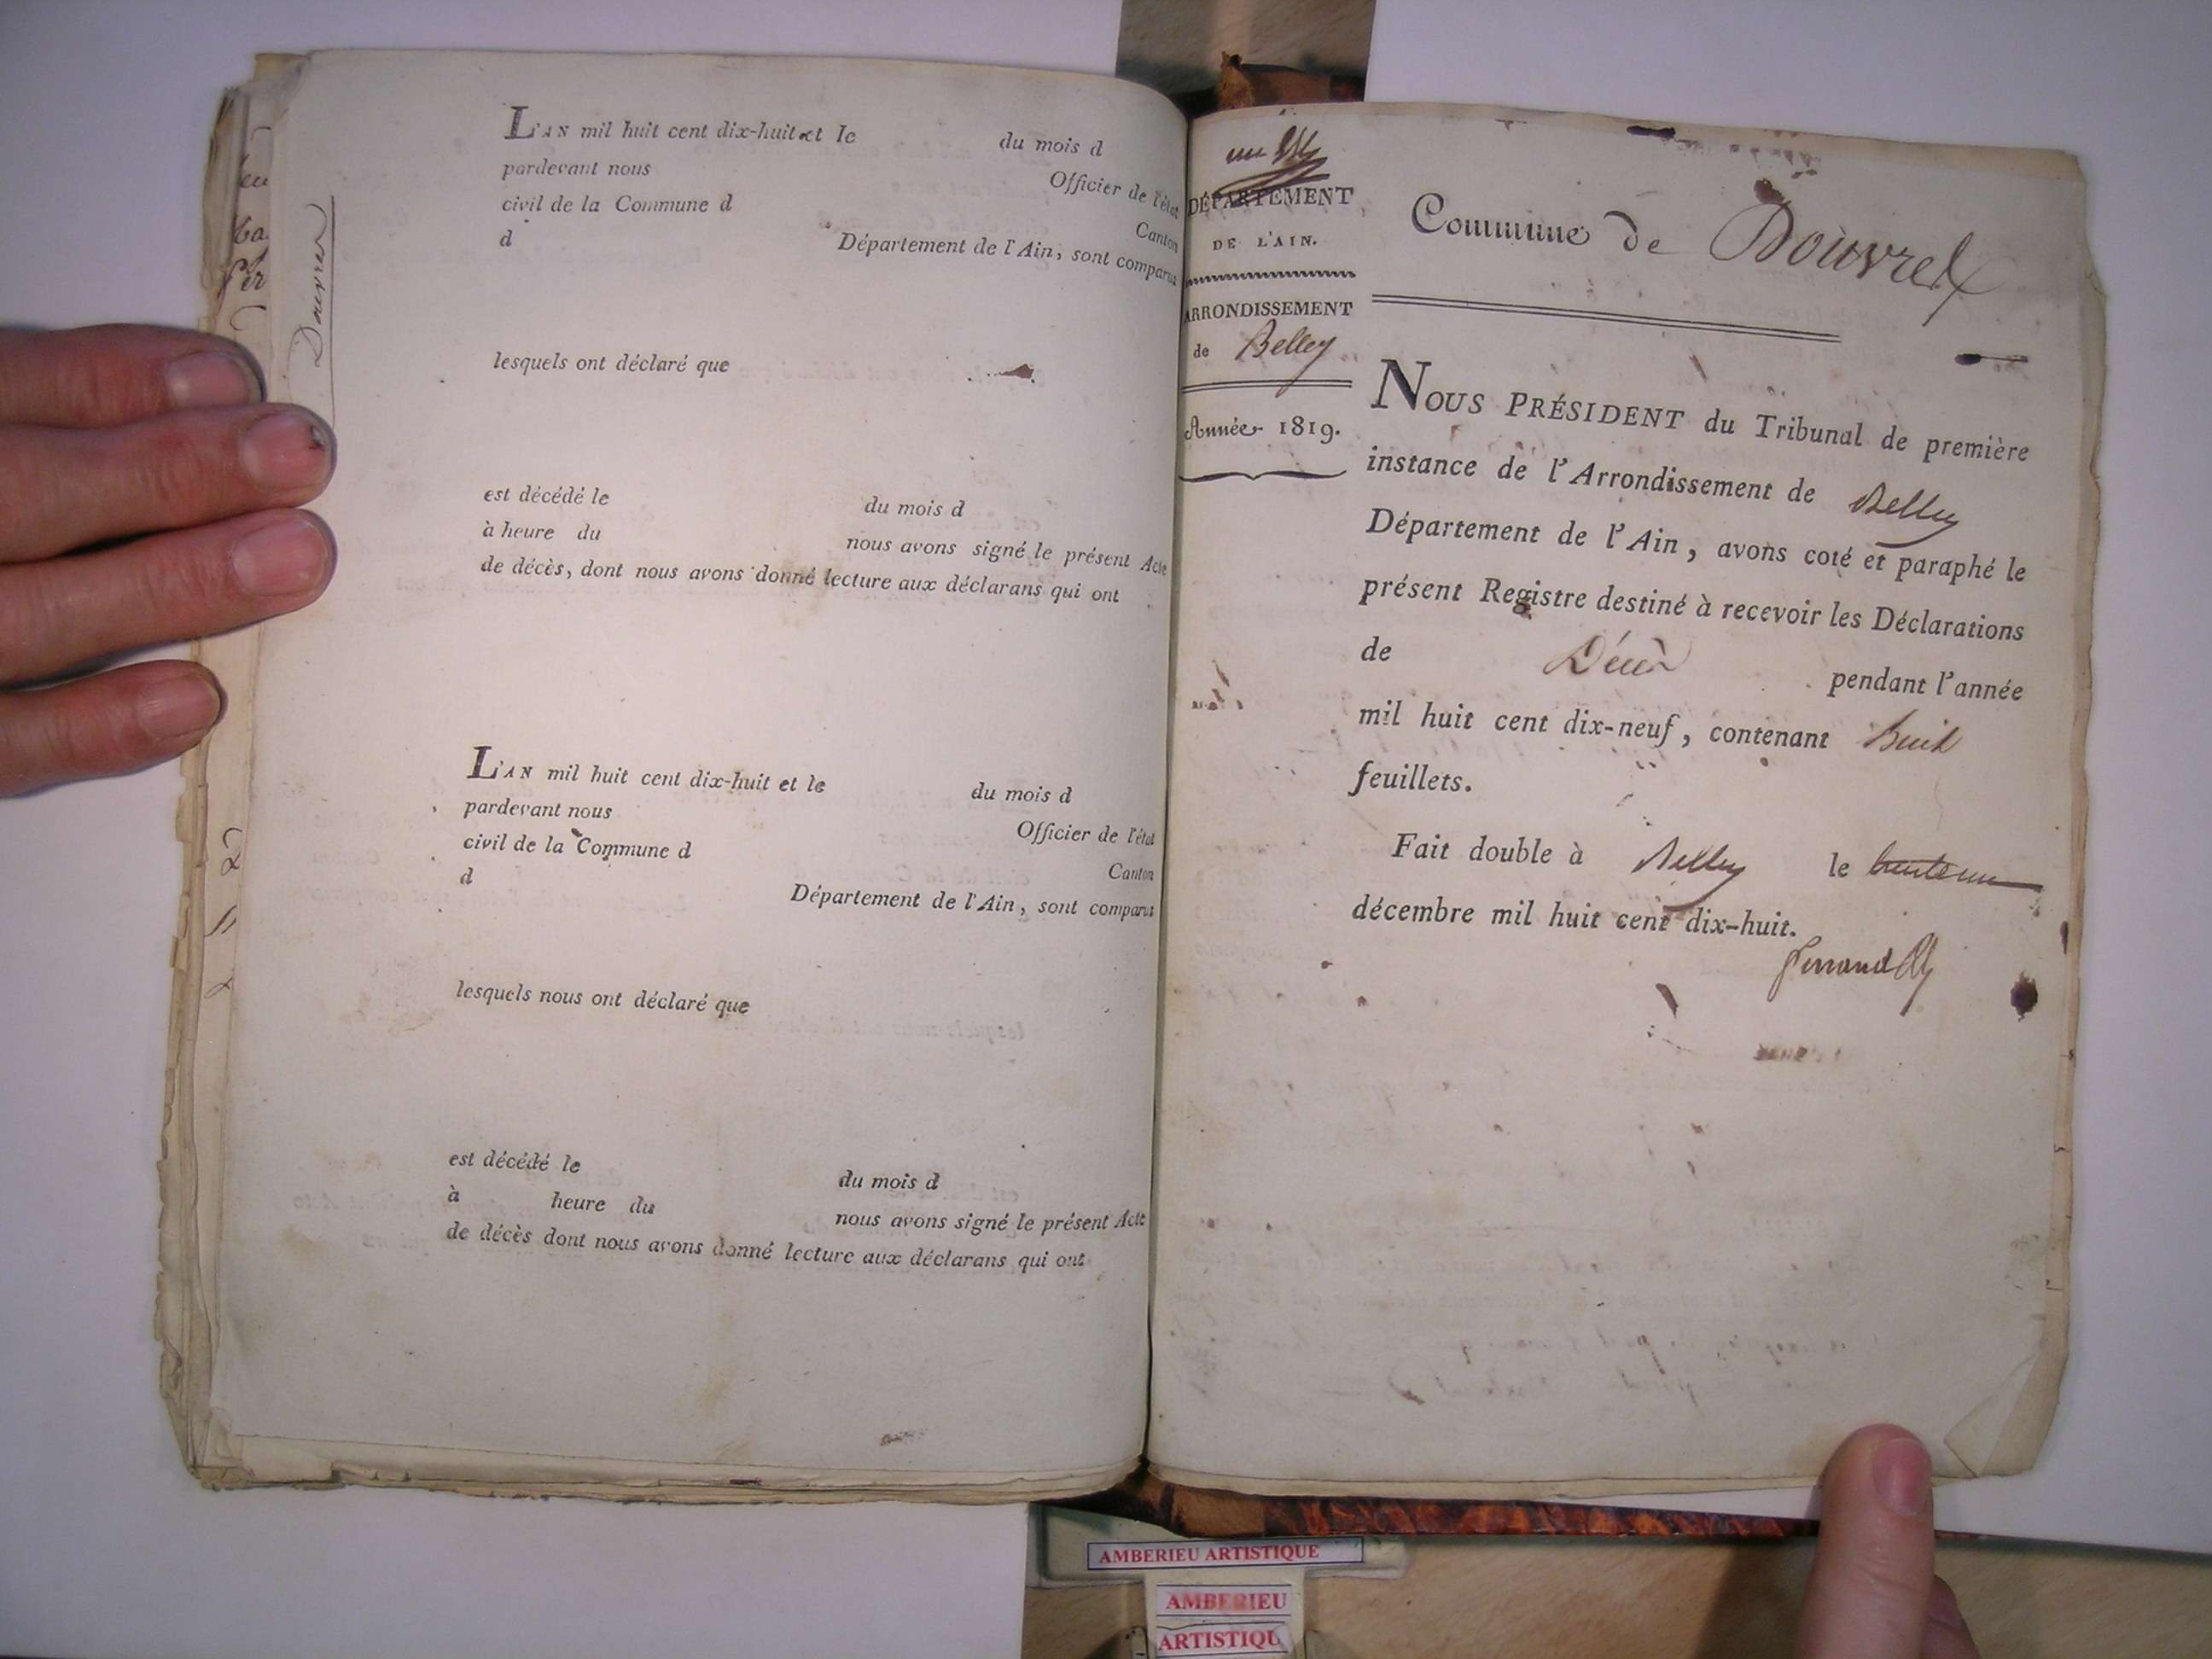 Douvres
L'AN mil huit cent dix-huit et le du mois d
pardevant nous Officier de l'état
civil de la Commune d Canton
d Département de l'Ain, sont comparus
lesquels ont déclaré que
est décédé le du mois d
à heure du nous avons signé le présent Acte
de décès, dont nous avons donné lecture aux déclarans qui ont
L'AN mil huit cent dix-huit et le du mois d
pardevant nous Officier de l'état
civil de la Commune d Canton
d Département de l'Ain, sont comparus
lesquels nous ont déclaré que
est décédé le du mois d
à heure du nous avons signé le présent Acte
de décès dont nous avons donné lecture aux déclarans qui ont
DÉPARTEMENT
DE L'AIN.
ARRONDISSEMENT
de Belley
Année 1819.
Commune de Douvres
NOUS PRÉSIDENT du Tribunal de première
instance de l'Arrondissement de Belley
Département de l'Ain, avons coté et paraphé le
présent Registre destiné à recevoir les Déclarations
de Décès pendant l'année
mil huit cent dix-neuf, contenant huit
feuillets.
Fait double à Belley le trente un
décembre mil huit cent dix-huit.
AMBERIEU ARTISTIQUE
AMBERIEU
ARTISTIQU